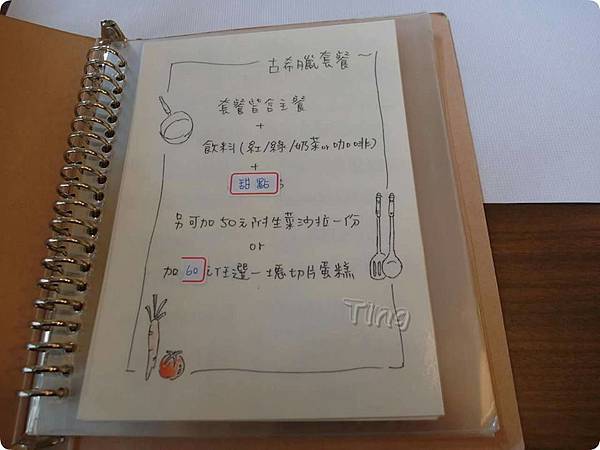 古希臘套餐~
套餐皆含主餐
+
飲料(紅/綠/奶茶or咖啡)
+
甜點
另可加50元附生菜沙拉一份
or
加60元任選一塊切片蛋糕
Ting